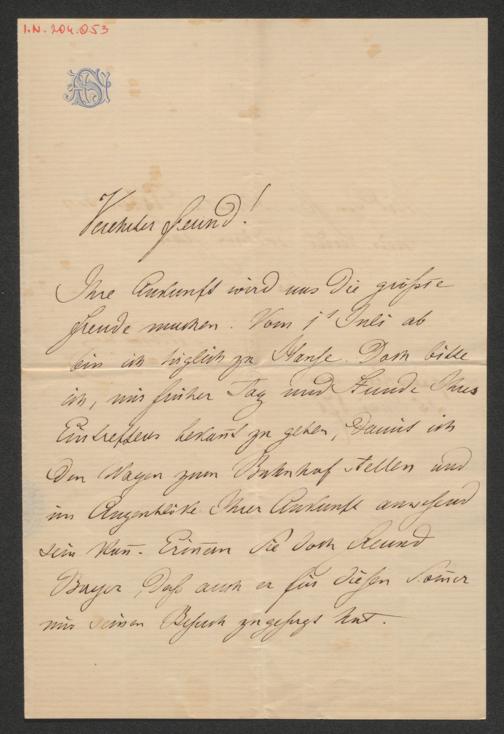 I.N. 204.053
Verehrter Freund!
Ihre Ankunft wird uns die größte
Freude machen. Vom 1t Juli ab
bin ich täglich zu Hause. Doch bitte
ich, mir früher Tag und Stunde Ihres
Eintreffens bekañt zu geben, damit ich
den Wagen zum Bahnhof stellen und
im Augenblicke Ihrer Ankunft anwesend
sein kañ. Eriñern Sie doch Freund
Bayer, daß auch er für diesen Som̄er
mir seinen Besuch zugesagt hat.